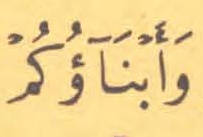 وَأَبْنَآؤُكُمْ